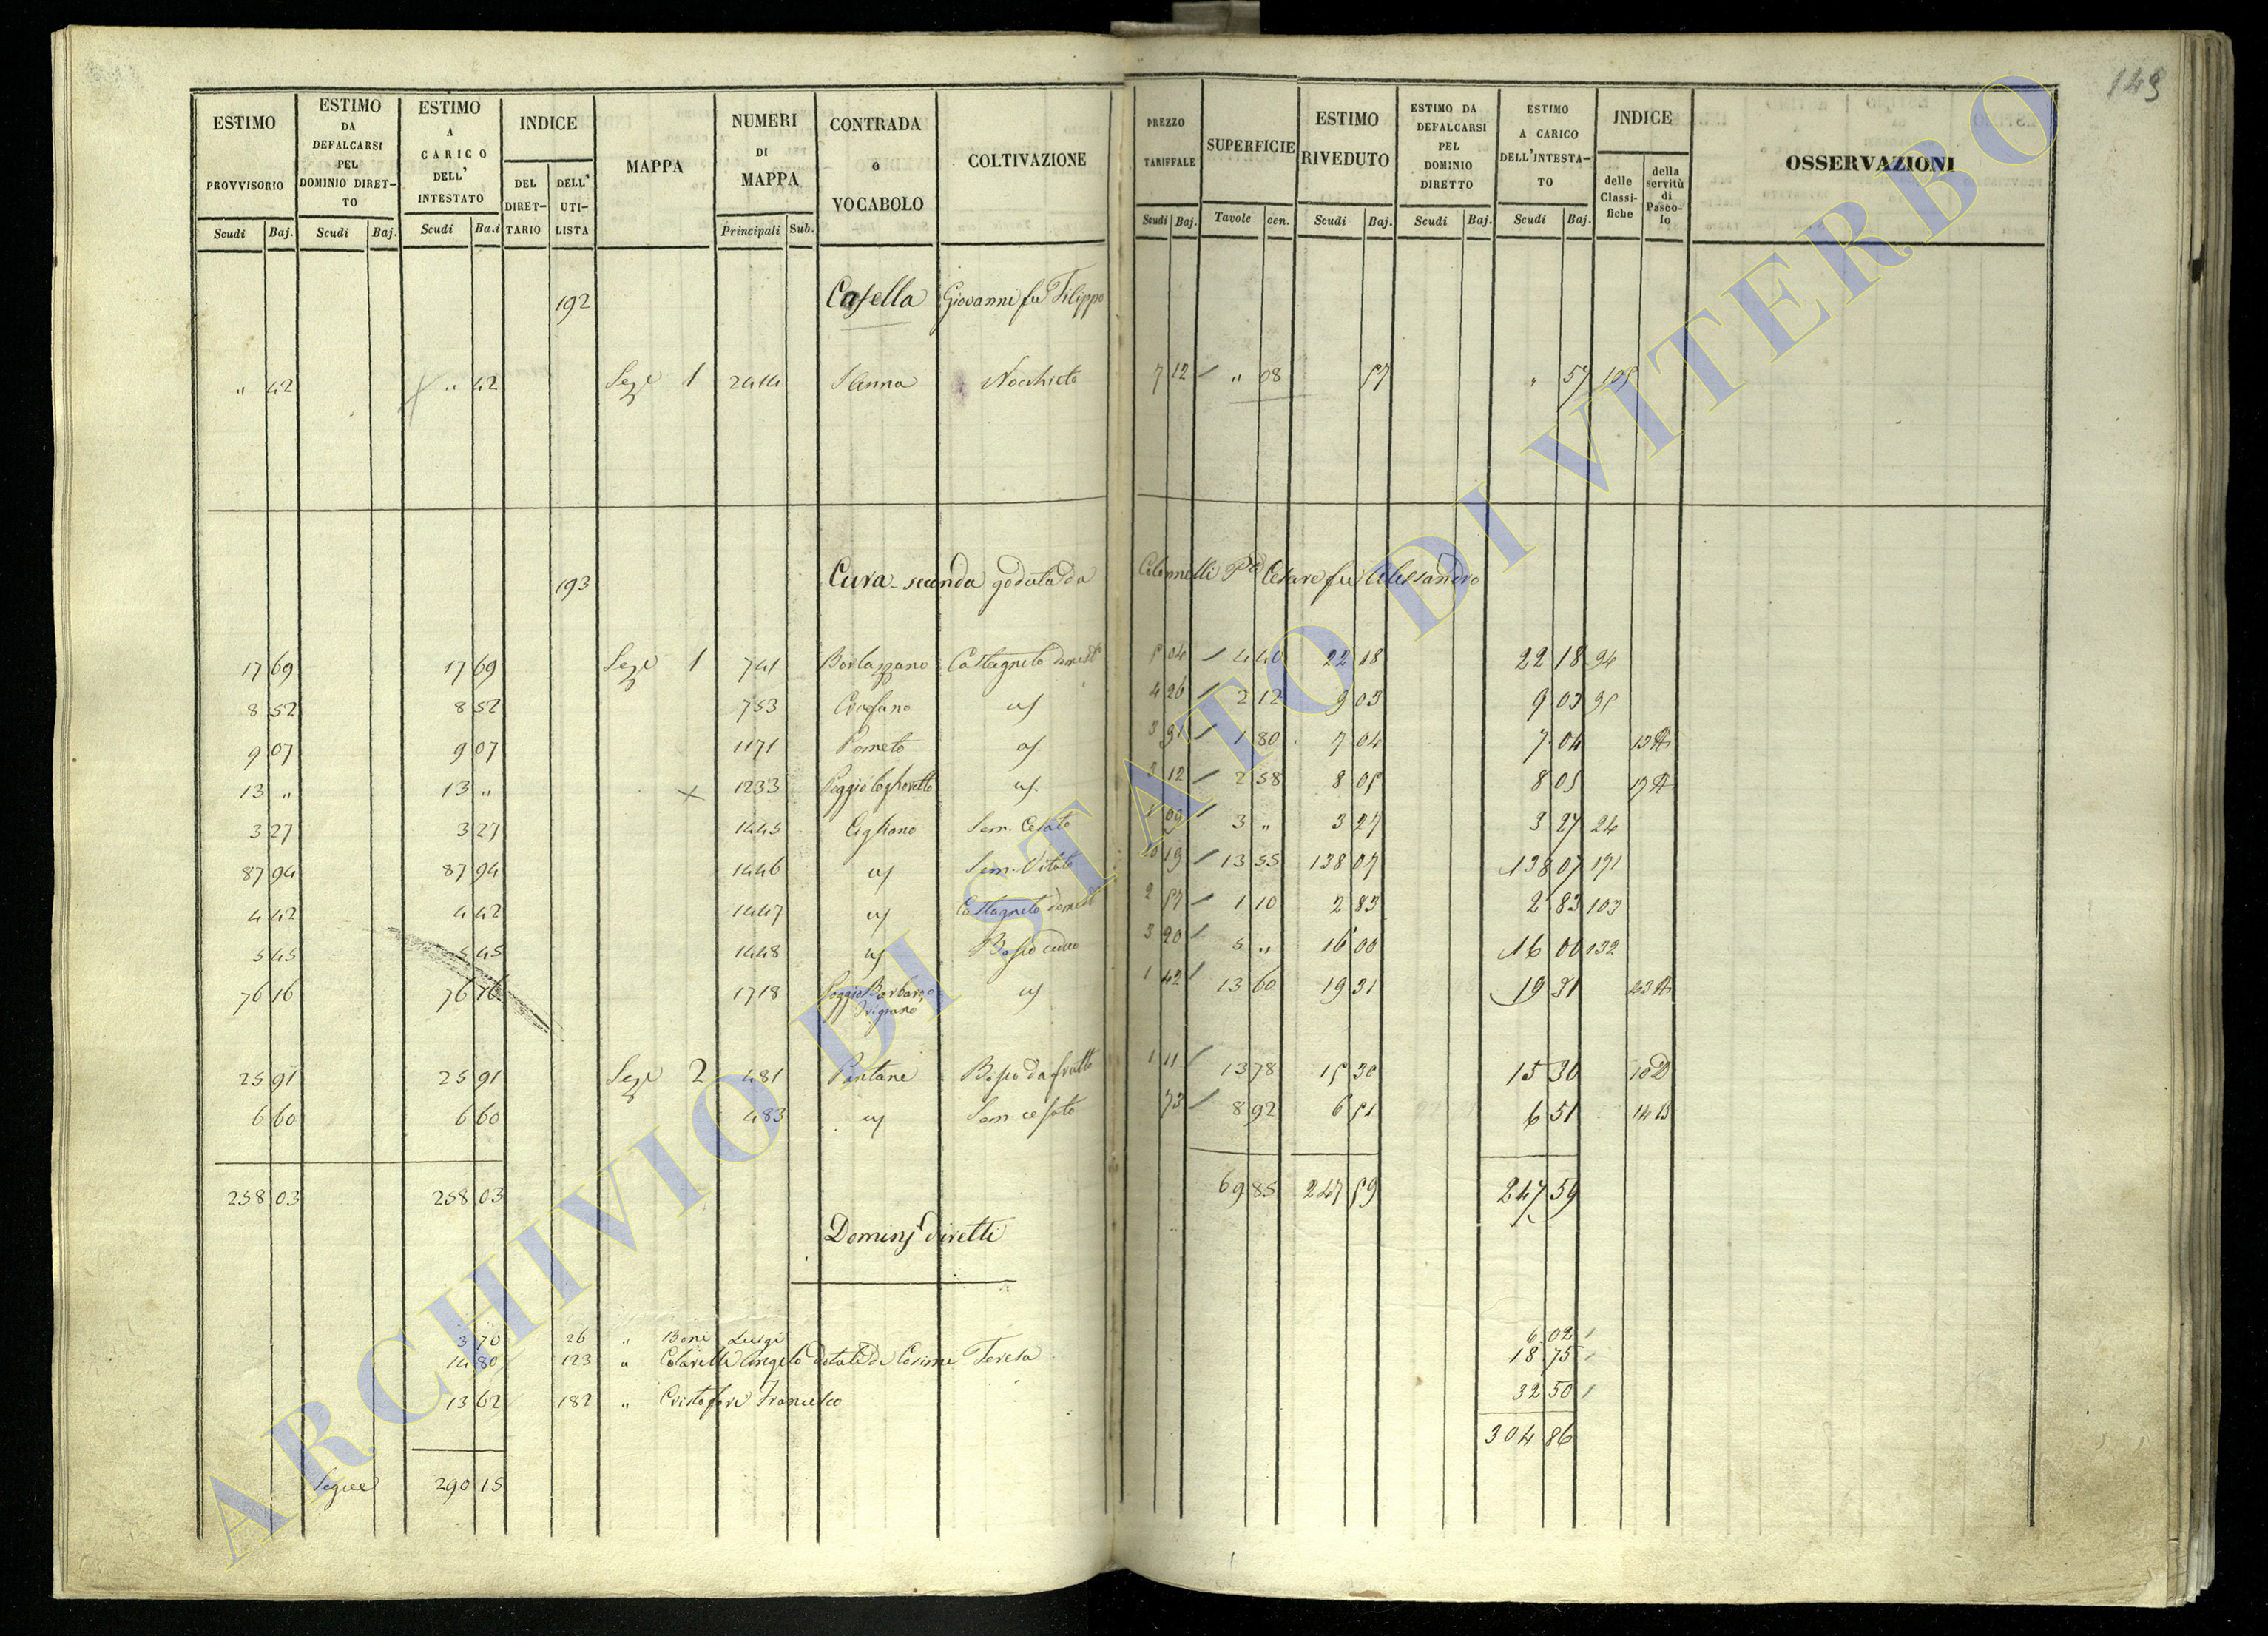 149
ESTIMO PROVVISORIO Scudi Baj.
ESTIMO DA DEFALCARSI PEL DOMINIO DIRETTO Scudi Baj.
ESTIMO A CARICO DELL' INTESTATO Scudi Ba.i
INDICE DEL DIRETTARIO DELL' UTILISTA
MAPPA
NUMERI DI MAPPA Principali Sub.
CONTRADA o VOCABOLO
COLTIVAZIONE
PREZZO TARIFFALE Scudi Baj.
SUPERFICIE Tavole cen.
ESTIMO RIVEDUTO Scudi Baj.
ESTIMO DA DEFALCARSI PEL DOMINIO DIRETTO Scudi Baj.
ESTIMO A CARICO DELL'INTESTATO Scudi Baj.
INDICE delle Classifiche della servitù di Pascolo
OSSERVAZIONI
192 Casella Giovanni fu Filippo
" 42 " 42 Seze 1 2414 S Anna Nocchieto 7 12 " 08 57 " 57 105
193 Cura seconda goduta da Colonnelli Pre Cesare fu Alessandro
17 69 17 69 Seze 1 741 Castagneto domest 5 04 4 40 22 18 22 18 94
8 52 8 52 753 Crocfano uf 4 26 2 12 9 03 9 03 95
9 07 9 07 1171 Pometo uf 3 91 1 80 7 04 7 04 13 A
13 " 13 " × 1233 uf 3 12 2 58 8 05 8 05 19 A
3 27 3 27 1445 Cigliano Sem. Cesato 1 09 3 " 3 27 3 27 24
87 94 87 94 1446 uf Sem. Vitato 10 19 13 55 138 07 138 07 191
4 42 4 42 1447 uf Castagneto domest 2 57 1 10 2 83 2 83 103
5 45 5 45 1448 uf Bosco ceduo 3 20 5 " 16 00 16 00 132
76 16 76 16 1718 Poggio Barbaro, Frignano uf 1 42 13 60 19 31 19 31 23 A
25 91 25 91 Seze 2 481 Pantane Bosco da frutto 1 11 13 78 15 30 15 30 10 D
6 60 6 60 483 uf Sem. cesato 73 8 92 6 51 6 51 14 B
258 03 258 03 69 85 247 59 247 59
Dominj diretti
3 70 26 " Bone Luigi 6 02
14 80 123 " Colarelli Angelo dotali di Cosimi Teresa 18 75
13 62 182 " Cristofori Francesco 32 50
304 86
Segue 290 15
ARCHIVIO DI STATO DI VITERBO